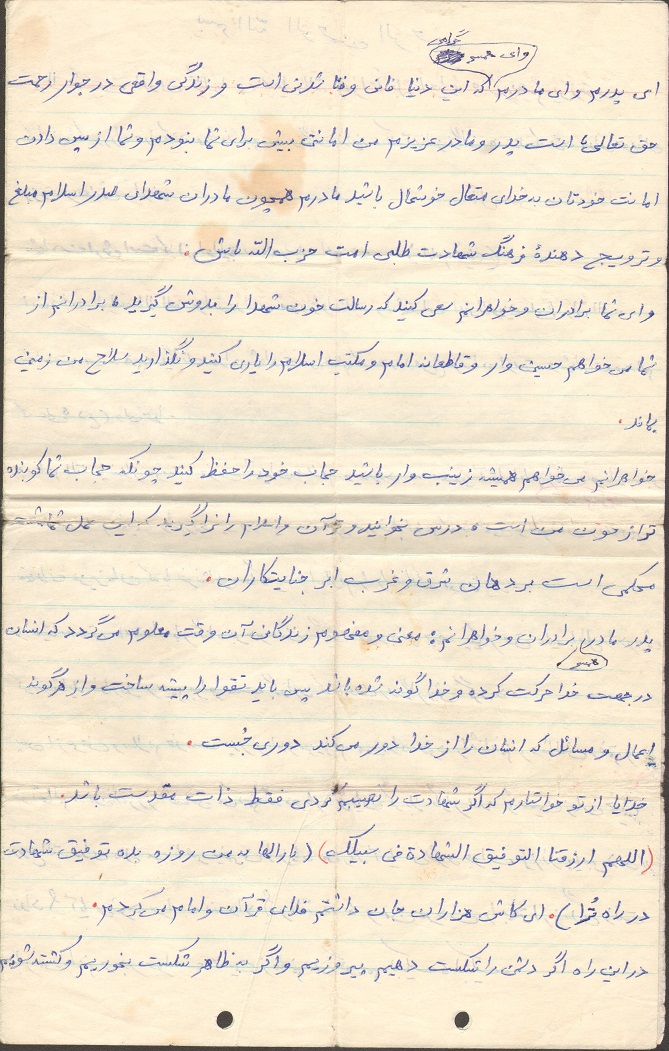 وای همسر گرامی
ای پدرم و ای مادرم که این دنیا فانی و فنا شدنی است و زندگی واقعی در جوار رحمت
حق تعالی است پدر و مادر عزیزم من امانتی بیش برای شما نبودم و شما از پس دادن
امانت خودتان به خدای متعال خوشحال باشید مادرم همچون مادران شهدای صدر اسلام مبلغ
و ترویج دهندهٔ فرهنگ شهادت طلبی امت حزب الله باش.
و ای شما برادران و خواهرانم سعی کنید که رسالت خون شهدا را بدوش گیرید، برادرانم از
شما می خواهم حسین وار و قاطعانه امام و مکتب اسلام را یاری کنید و نگذارید سلاح من زمین
بماند.
خواهرانم می خواهم همیشه زینب وار باشید حجاب خود را حفظ کنید چونکه حجاب شما کوبنده
تر از خون من است، درس بخوانید و قرآن و اسلام را فرا گیرید که این عمل شما مشت
محکمی است بر دهان شرق و غرب ابر جنایتکاران.
پدر مادر برادران و خواهرانم، معنی و مفهوم زندگانی آن وقت معلوم می گردد که انسان
همسر
در جهت خدا حرکت کرده و خدا گونه شده باشد پس باید تقوا را پیشه ساخت و از هرگونه
اعمال و مسائل که انسان را از خدا دور می کند دوری جُست.
خدایا از تو خواستارم که اگر شهادت را نصیبم کردی فقط ذات مقدست باشد.
(اللهم ارزقنا التوفیق الشهادة فی سبیلک) (بارالها به من روزه بده توفیق شهادت
در راه تُرا). ای کاش هزاران جان داشتم فدای قرآن و امام می کردم.
در این راه اگر دشمن را شکست دهیم پیروزیم و اگر به ظاهر شکست بخوریم و کشته شویم